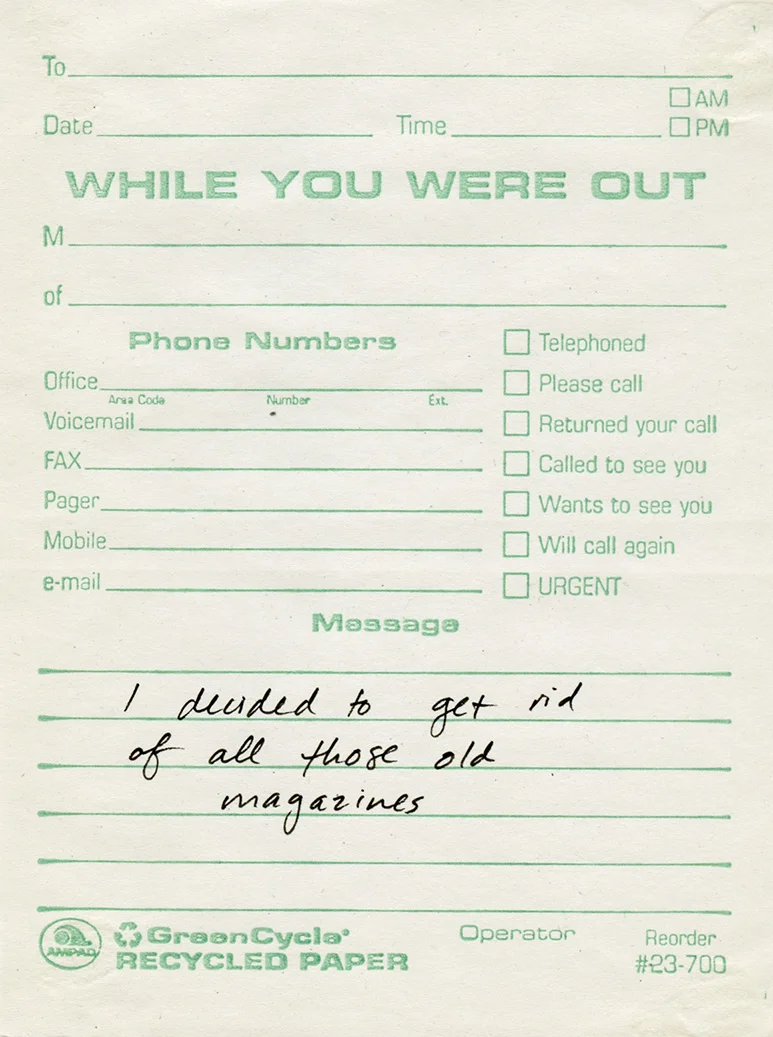 To
AM
Date Time PM
WHILE YOU WERE OUT
M
of
Phone Numbers
Telephoned
Office
Please call
Area Code Number Ext.
Voicemail
Returned your call
FAX
Called to see you
Pager
Wants to see you
Mobile
Will call again
e-mail
URGENT
Message
I decided to get rid
of all those old
magazines
AMPAD
GreenCycle®
RECYCLED PAPER
Operator
Reorder
#23-700